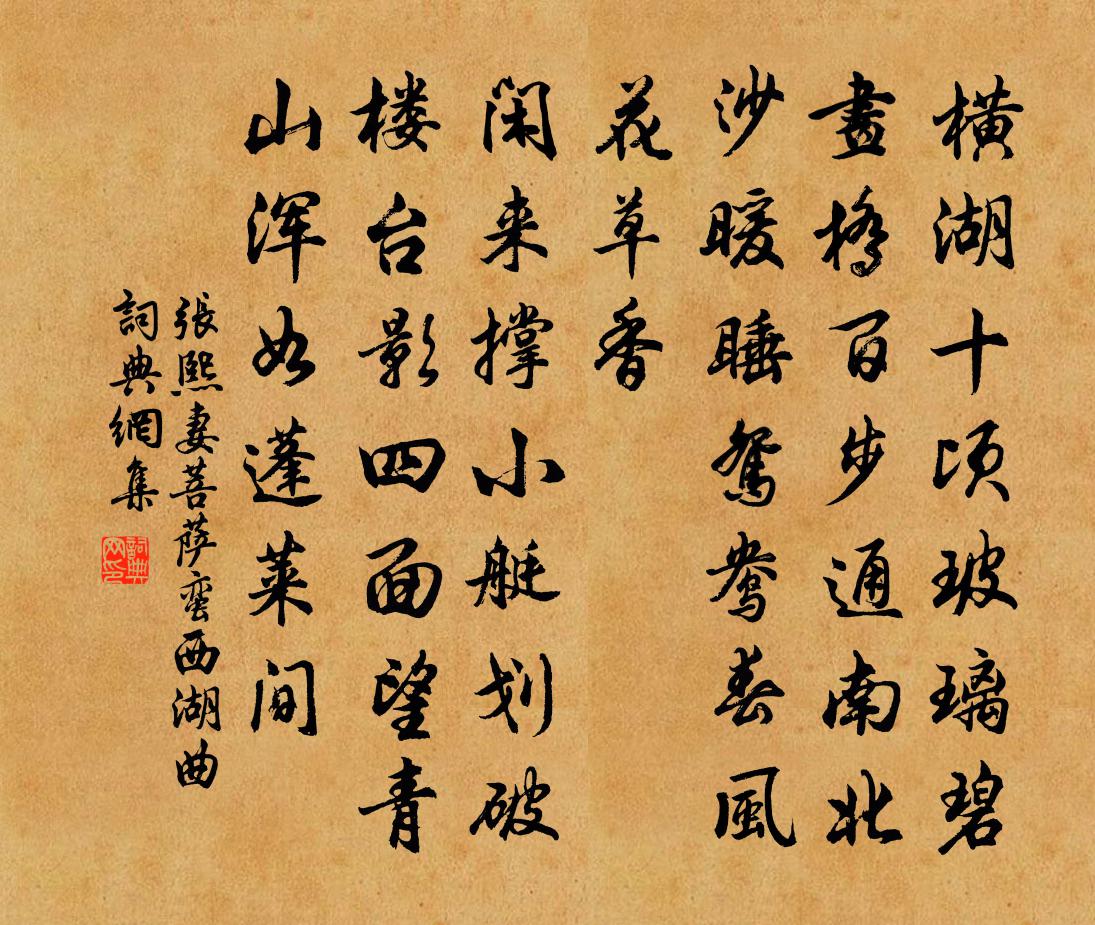 横湖十顷玻璃碧
畫橋百步通南北
沙暖睡鴛鴦春風
花草香
闲来撑小艇划破
楼台影四面望青
山浑如蓬莱间
張熙妻菩萨蛮西湖曲
詞典網集
詞典
网印